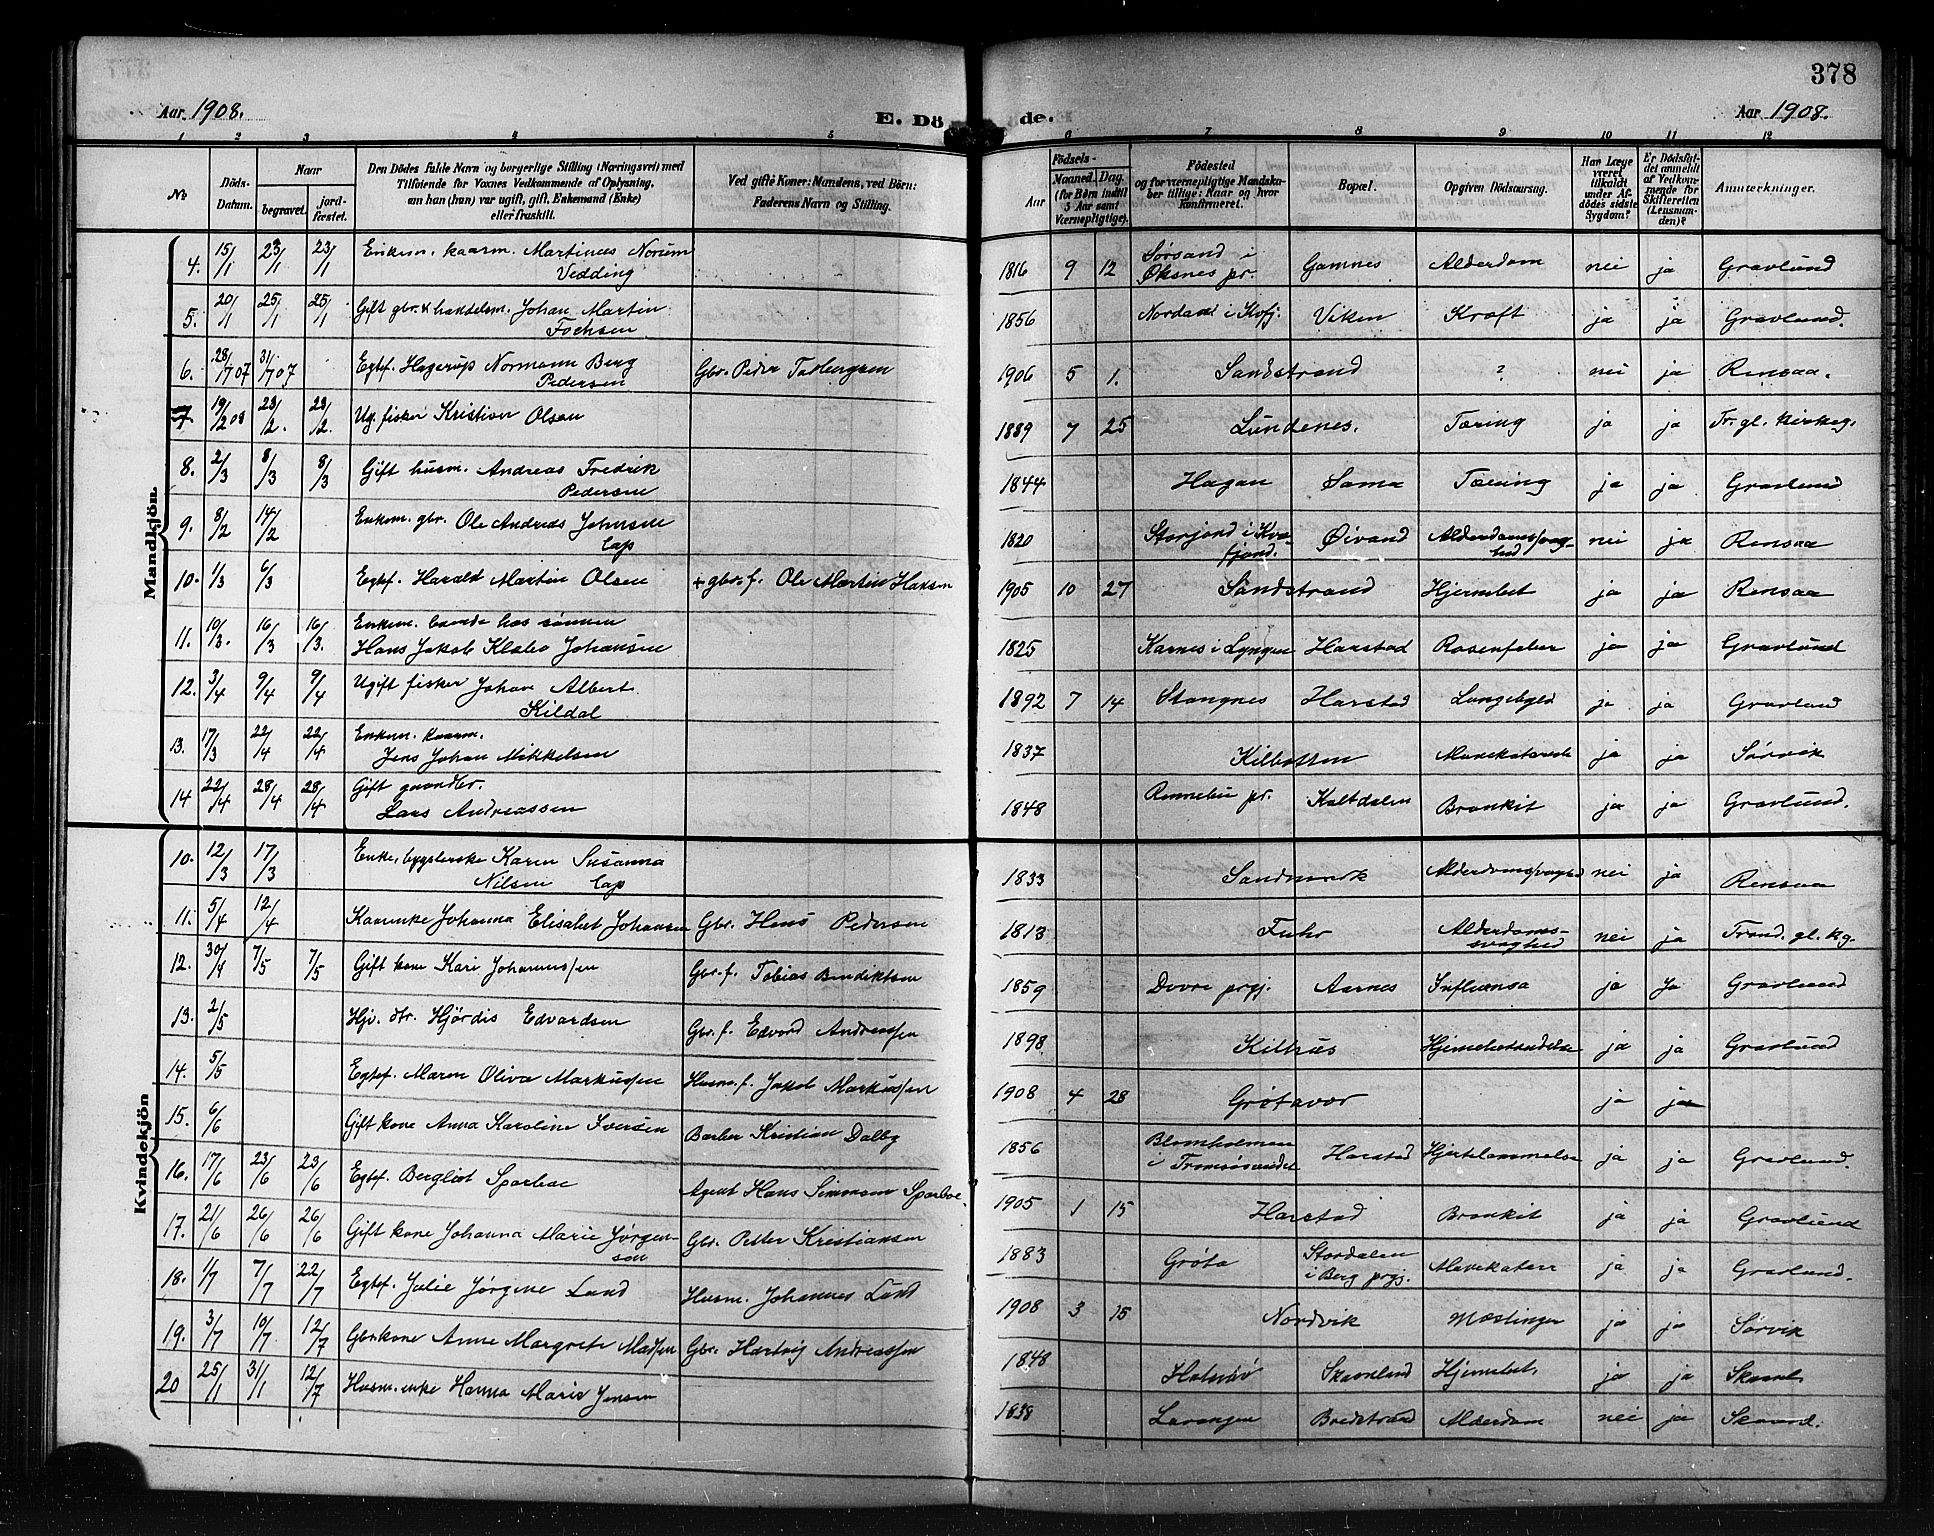 378
Aar 1908.
E. Dö
de.
Aar 1908.
1 2 3 4 5 6 7 8 9 10 11 12
No
Döds-Datum.
Naar
begravet.
jordfæstet.
Den Dödes fulde Navn og borgerlige Stilling (Næringsvei) med
Tilföiende for Voxnes Vedkommende af Oplysning,
om han (hun) var ugift, gift, Enkemand (Enke)
eller fraskilt.
Ved gifte Koner: Mandens, ved Börn:
Faderens Navn og Stilling.
Födsels-
Aar
Maaned. Dag.
(for Börn indtil
5 Aar samt
Værnepligtige).
Födested
og for værnepligtige Mandska-
ber tillige: Naar og hvor
konfirmeret.
Bopæl.
Opgiven Dödsaarsag.
Har Læge
været
tilkaldt
under Af-
dödes sidste
Sygdom?
Er Dödsfal-
det anmeldt
af Vedkom-
mende for
Skifteretten
(Lensman-
den)?
Anmærkninger.
Mandkjön.
4. 15/1 23/1 23/1 Enkem. kaarm. Martinus Norum Vedding 1816 9 12 Sørsand i Øksnes pr. Gamnes Alderdom nei ja Gravlund
5. 20/1 25/1 25/1 Gift gbr. & handelsm. Johan Martin Fochsen 1856 i Kvfj. Viken Kræft ja ja Gravlund.
6. 28/7 07 31/7 07 Egtef. Hagerup Normann Berg Pedersen Gbr. Peder 1906 5 1. Sandstrand ? nei ja Rensaa.
7 19/2 08 23/2. 23/2. Ug. fisker Kristian Olsen 1889 7 25 Lundenes. Tæring ja ja Tr. gl. kirkeg.
8. 2/3 8/3 8/3 Gift husm. Andreas Fredrik Pedersen 1844 Hagan Sama Tæring ja ja Gravlund
9. 8/2 14/2 Enkem. gbr. Ole Andreas Johnsen lap 1820 Storjord i Kvæfjord. Øivand Alderdomssvaghed nei ja Rensaa
10. 1/3 6/3 Egtef. Harald Martin Olsen + gbr. f. Ole Martin Hansen 1905 10 27 Sandstrand Hjernebet ja ja Rensaa
11. 10/3. 16/3 16/3. Enkem. boende hos sønnen Hans Jakob Klæbo Johansen 1825 Karnes i Lyngen Harstad Rosenfeber ja ja Gravlund
12. 3/4 9/4 9/4 Ugift fisker Johan Albert Kildal 1892 7 14 Stangnes Harstad Lungebyld ja ja Gravlund
13. 17/3 22/4 22/4 Enkem. kaarm. Jens Johan Mikkelsen 1837 Kilbotten ja ja Sørvik
14 22/4 28/4 28/4 Gift gaardbr. Lars Andreassen 1848 Rennebu pr. Kaltdalen Bronkit ja ja Gravlund.
Kvindekjön
10. 12/3 17/3 Enke, bygslerske Karen Susanna Nilsen lap 1833 Sandmark Alderdomssvaghed nei ja Rensaa
11. 5/4 12/4 Kaarenke Johanna Elisabet Johansen Gbr. Hans Pedersen 1813 Fuhr Alderdomssvaghed nei ja Trond. gl. kg.
12. 30/4 7/5 7/5 Gift kone Kari Johannessen Gbr. f. Tobias Bendiktsen 1859 Dovre prgj. Aarnes Influensa ja Ja Gravlund
13. 2/5 Hjv. dtr. Hjördis Edvardsen Gbr. f. Edvard Andreassen 1898 Kilhus Hjernebetændelse ja ja Gravlund
14. 5/5 Egtef. Maren Oliva Markussen Husm. f. Jakob Markussen 1908 4 28 Grøtavær ja ja
15. 6/6 Gift kone Anna Karoline Iversen Barber Kristian Dalby 1856 Blomholmen i Tromsøsundet Harstad Hjertelammelse ja ja Gravlund.
16. 17/6 23/6 23/6 Egtef. Bergliot Sparboe Agent Hans Simonsen Sparboe. 1905 1 15 Harstad Bronkit ja ja Gravlund
17. 21/6 26/6 26/6 Gift kone Johanna Marie Jørgensen Gbr. Peter Kristiansen 1883 Grøta Stordalen i Berg prgj. Mavekatarr ja ja Gravlund.
18. 1/7 7/7 22/7 Egtef. Julie Jørgine Lund Husm. Johannes Lund 1908 3 15 Nordvik Mæslinger ja ja Sørvik
19. 3/7 10/7 12/7 Gbr. kone Anne Margrete Madsen Gbr. Hartvig Andreassen 1848 Skaanland Hjernebet. ja ja Skaanl.
20 25/1 31/1 12/7 Husm. enke Hanna Marie Jensen 1838 Lavangen Breistrand Alderdom nei ja Skaanl.